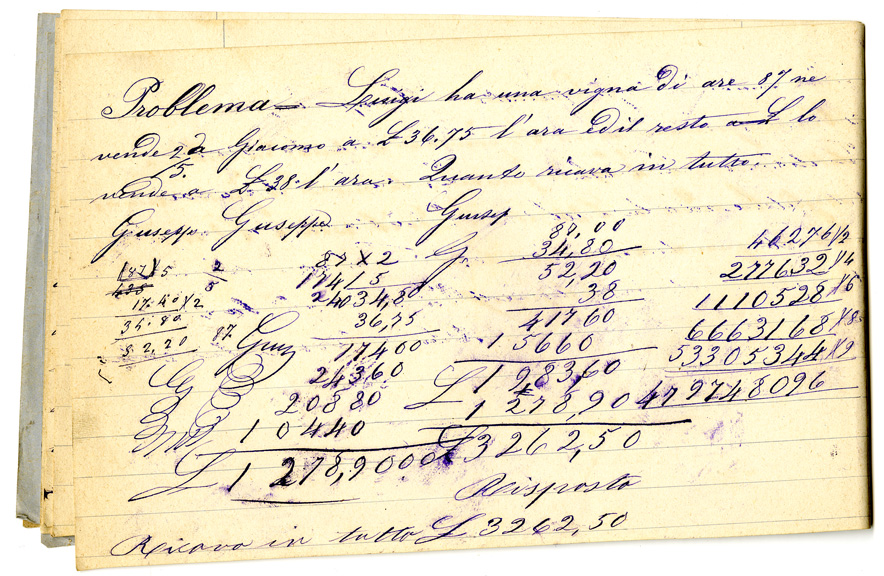 Problema = Luigi ha una vigna di are 87. ne
vende 2/5 a Giacomo a £ 36.75 l'ara ed il resto a £ lo
vende a £ 38. l'ara. Quanto ricava in tutto.
Giuseppe Giuseppe Giusep
87 5 2/5 87 x 2 87,00 46276 x/2
435 174 / 5 34,80 277632 x/4
17.40 x/2 24034,80 52,20 1110528 x/6
34.80 36,75 38 6663168 x/8
52,20 87. 17400 41760 53305344 x/9
24360 15660 479748096
20880 £ 198360
10440 127890
£ 1278,9000 £ 3262,50
Risposta
Ricava in tutto £ 3262,50